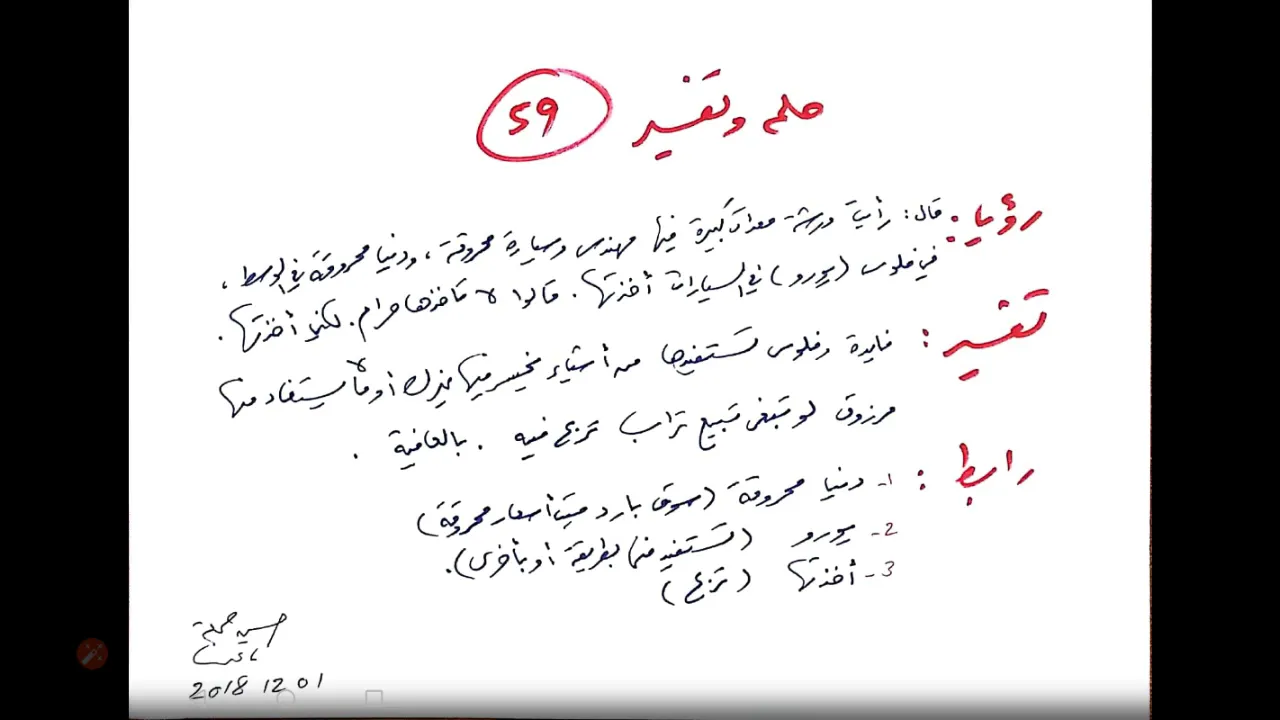 حلم وتفسير 59
رؤيا: قال: رأيت ورشة معدات كبيرة فيها مهندس وسيارة محروقة، ودنيا محروقة في الوسط،
في فلوس (يورو) في السيارات أخذتها. قالوا لا تاخذها حرام. لكني أخذتها.
تفسير: فايدة وفلوس تستفيدها من أشياء يخسر فيها غيرك أو لا يستفاد منها
مرزوق لو تبغى تبيع تراب تربح فيه. بالعافية.
رابط: 1- دنيا محروقة (سوق بارد ميت أسعار محروقة)
2- يورو (تستفيد منها بطريقة أو بأخرى).
3- أخذتها (تربح)
حسين
2018 12 01